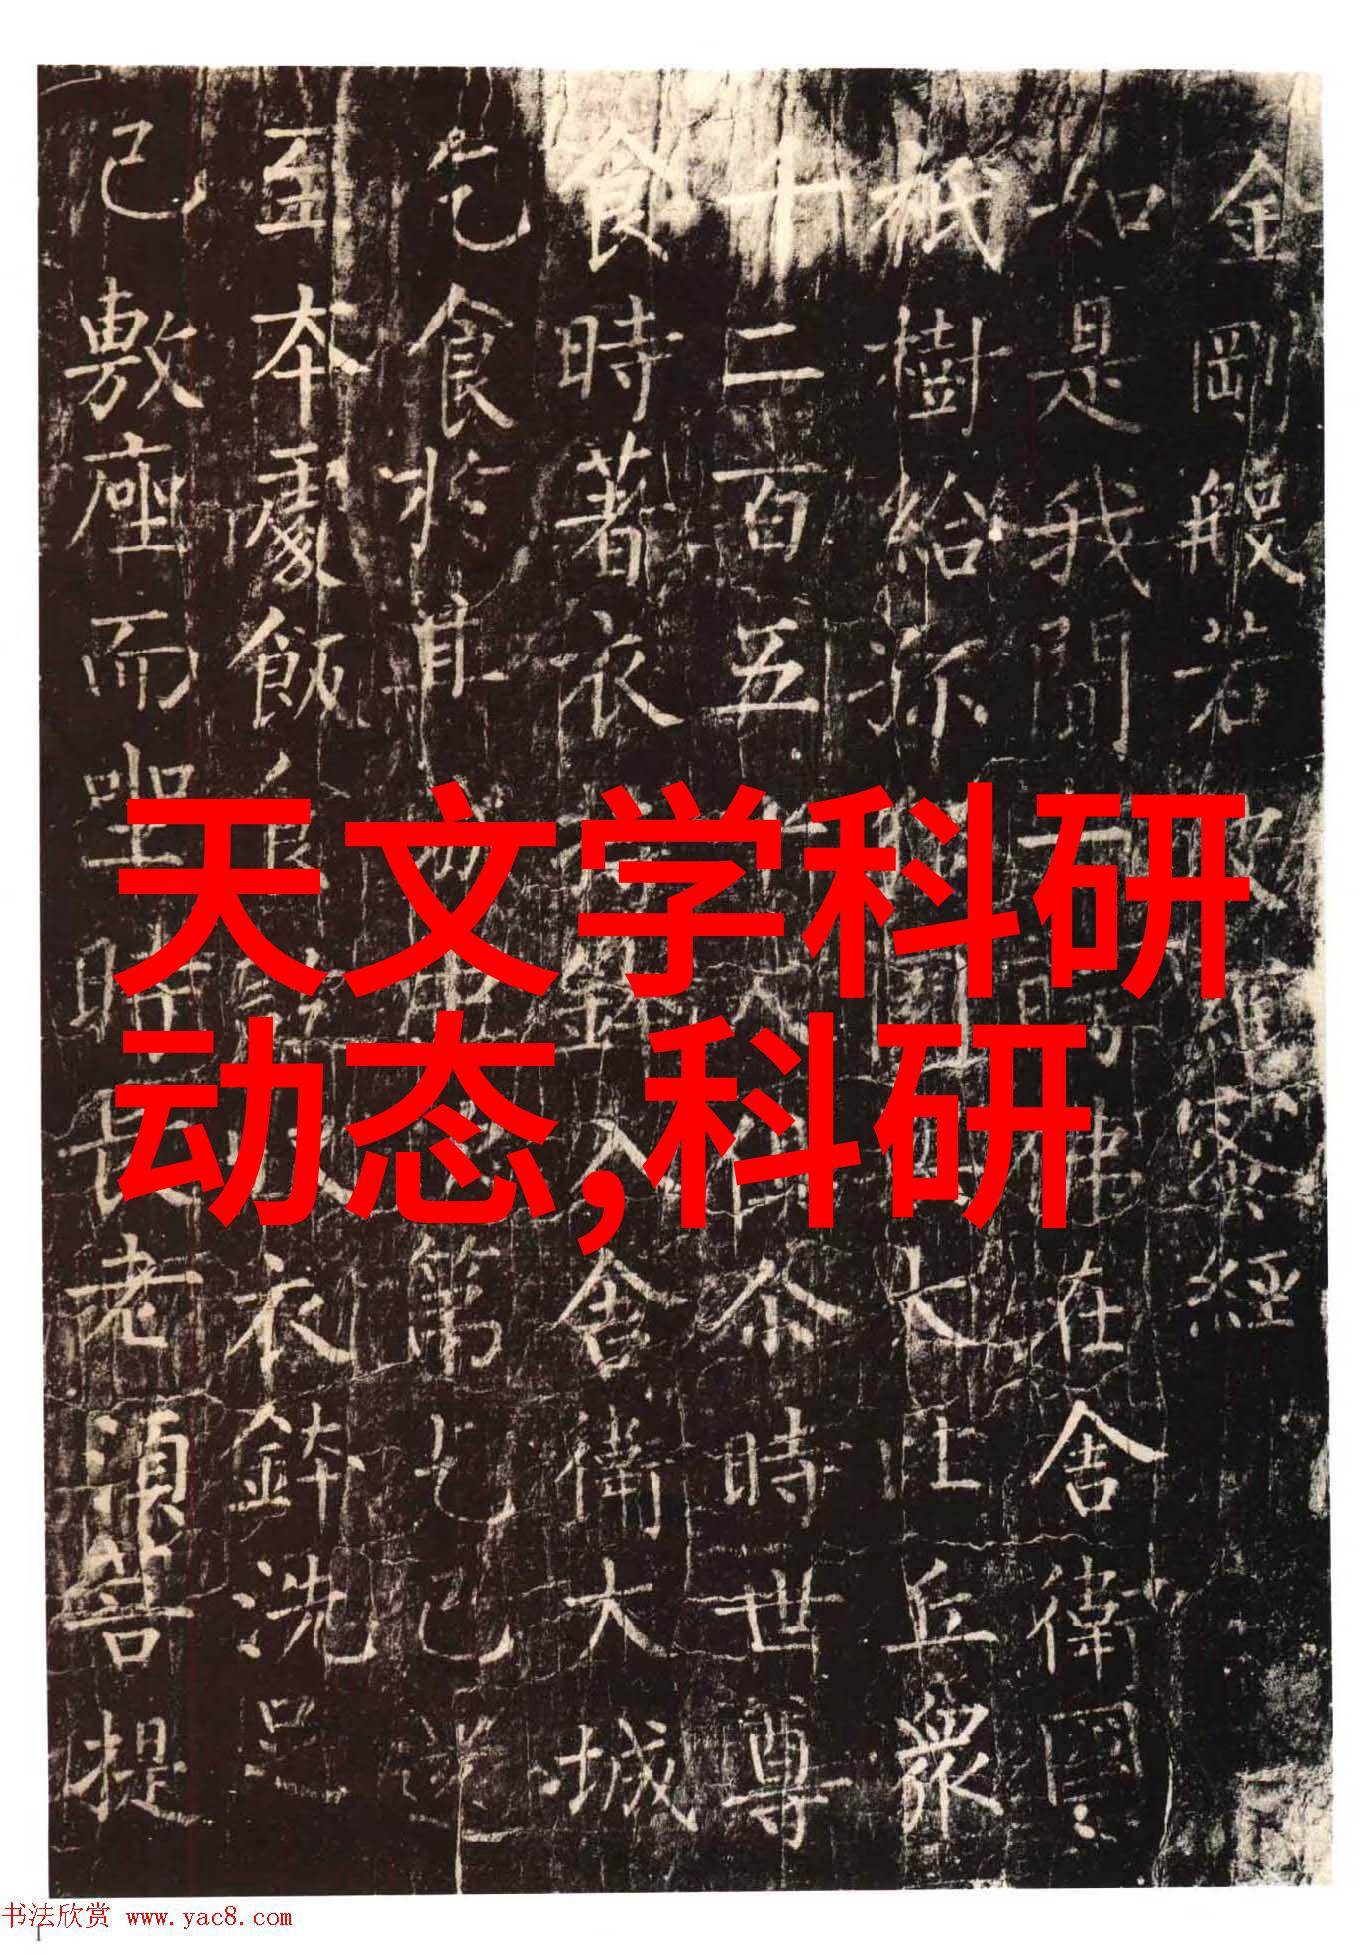 金剛般若波羅蜜經
如是我聞一時佛在舍衛國
祇樹給孤獨園與大比丘衆
千二百五十人俱尒時世尊
食時著衣持鉢入舍衛大城
乞食於其城中次第乞已還
至本處飯食訖收衣鉢洗足
已敷座而坐時長老湏菩提
天文学科研
动态,科研
书法欣赏 www.yac8.com